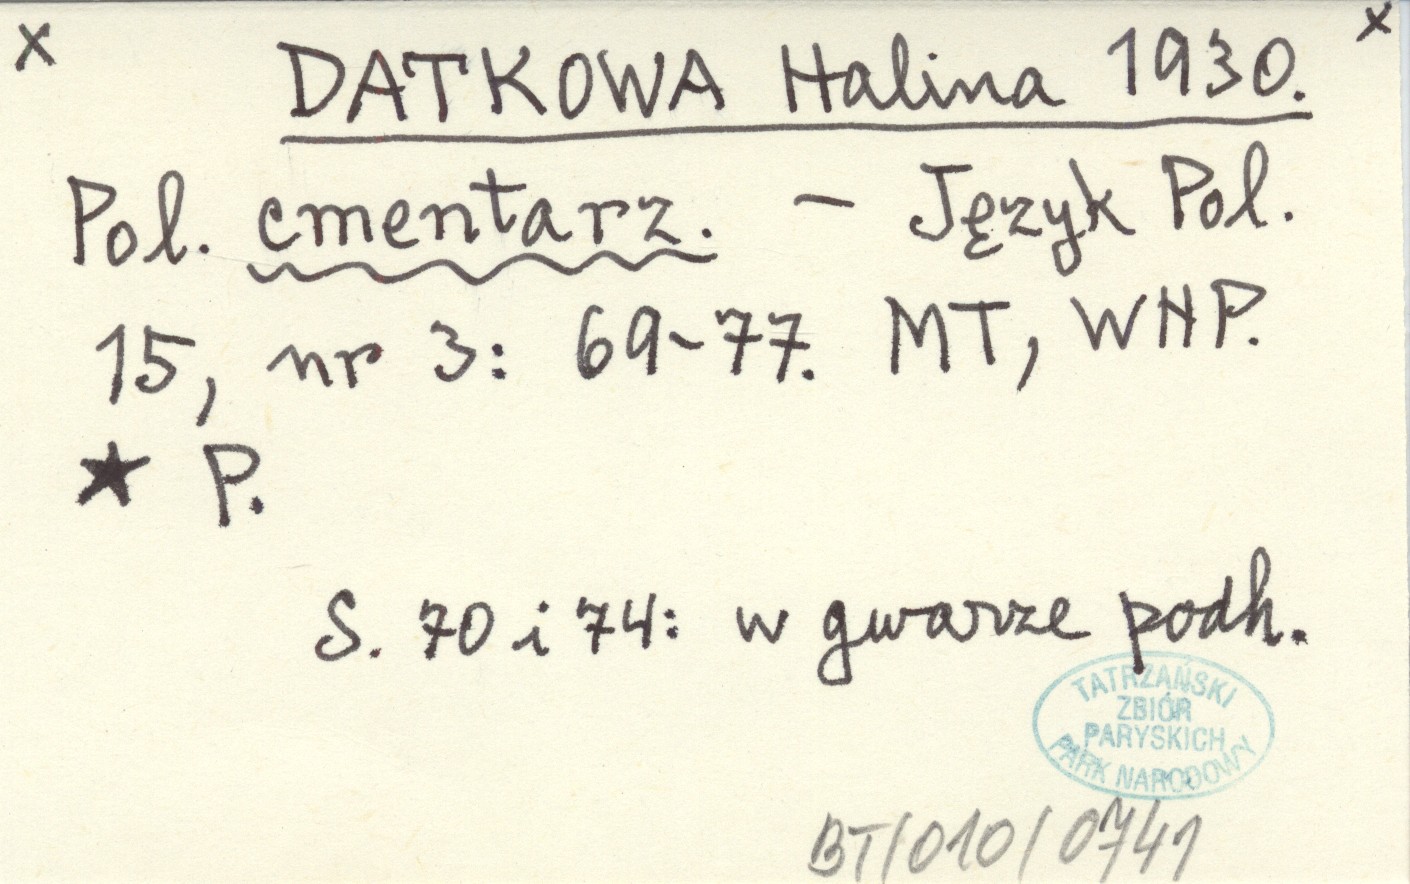 x DATKOWA Halina 1930. x
Pol. cmentarz. – Język Pol.
15, nr 3: 69-77. MT, WHP.
★ P.
S. 70 i 74: w gwarze podh.
TATRZAŃSKI
ZBIÓR
PARYSKICH
PARK NARODOWY
BT/010/0741